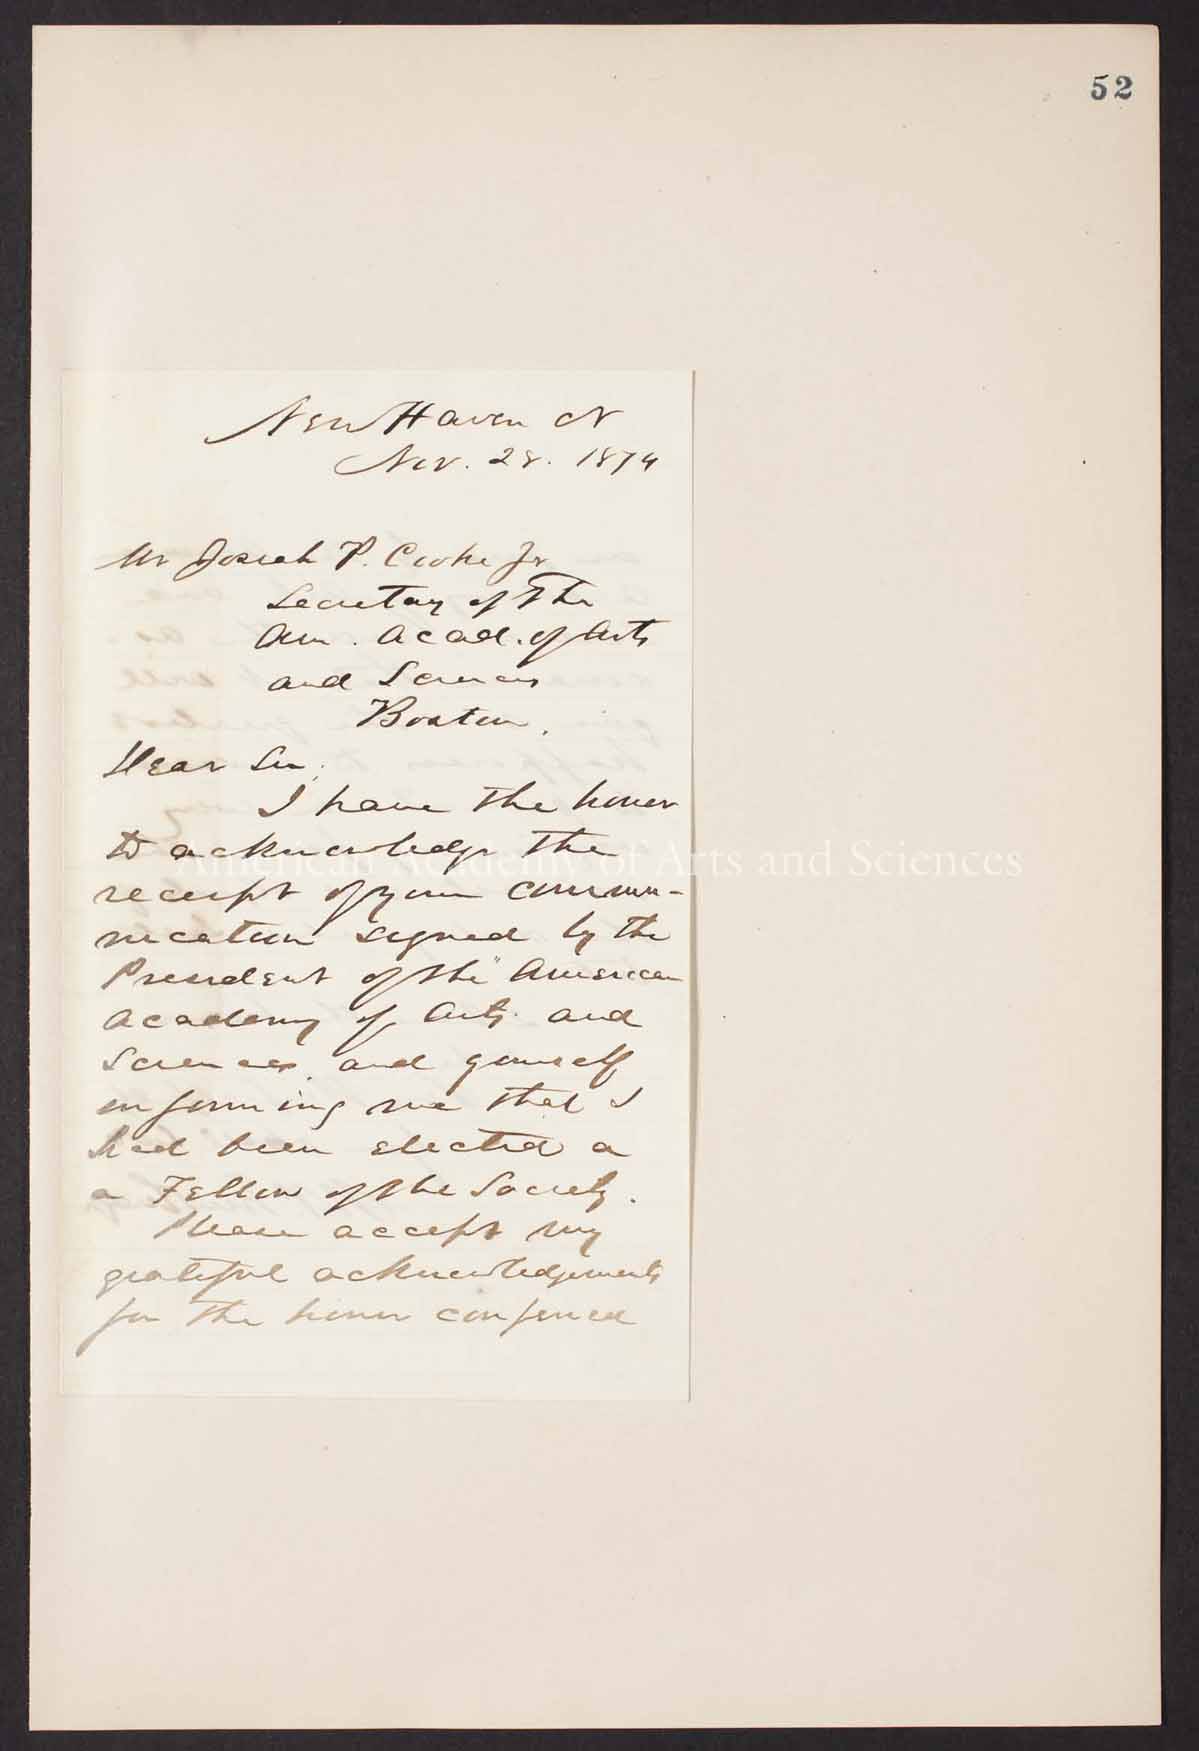 52
New Haven Ct
Nov. 28. 1874
Mr Josiah P. Cooke Jr
Secretary of the
Am. Acad. of Arts
and Sciences
Boston.
Dear Sir,
I have the honor
to acknowledge the
American Academy of Arts and Sciences
receipt of your commu-
nication signed by the
President of the "American
Academy of Arts and
Sciences and yourself
informing me that I
had been elected a
a Fellow of the Society.
Please accept my
grateful acknowledgements
for the honor conferred